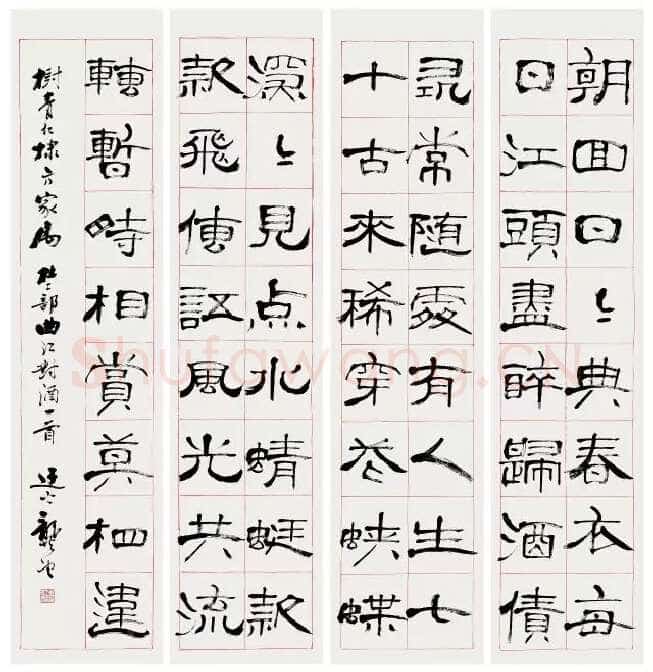 朝回日〻典春衣每
日江頭盡醉歸酒債
尋常随處有人生七
十古來稀穿花蛺蝶
深〻見点水蜻蜓款
款飛傳語風光共流
轉暫時相賞莫相違
樹青仁棣方家屬 杜工部曲江對酒一首 龔望
Shufawang.CN